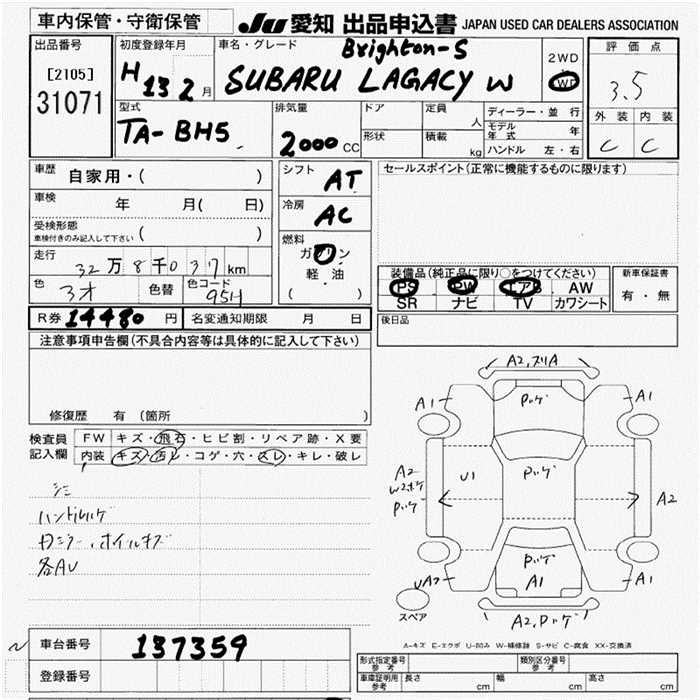 車内保管・守衛保管
JU 愛知 出品申込書 JAPAN USED CAR DEALERS ASSOCIATION
出品番号
[2105]
31071
初度登録年月
H 13 2 月
車名・グレード
Brighton-S
SUBARU LAGACY W
2WD
4WD
評価点
3.5
外装 内装
C C
型式
TA-BH5
排気量
2000 CC
ドア
形状
定員
人
積載
kg
ディーラー・並行
モデル年式 年
ハンドル 左・右
車歴 自家用・( )
車検 年 月( 日)
受検形態
車検付きのみ記入して下さい ( )
走行 32万 8千0 37 km
色 色替 色コード
95H
シフト
AT
冷房
AC
燃料
ガソリン
軽油
( )
セールスポイント(正常に機能するものに限ります)
装備品(純正品に限り○をつけてください)
PS PW エアB AW
SR ナビ TV カワシート
新車保証書
有・無
R券 14480 円 名変通知期限 月 日
後日品
注意事項申告欄(不具合内容等は具体的に記入して下さい)
修復歴 有 (箇所 )
検査員
記入欄
FW キズ・飛石・ヒビ割・リペア跡・X要
内装 キズ・汚レ・コゲ・穴・スレ・キレ・破レ
シミ
ハンドルハゲ
ホイルキズ
各AU
A2,スリA
A1 ハゲ A1
A2
ハゲ
U1 ハゲ A2
ハゲ
A2 A1 A1
A2,ハゲ
スペア
A-キズ E-エクボ U-凹み W-補修跡 S-サビ C-腐食 XX-交換済
車台番号 137359
登録番号
形式指定番号
参考
類別区分番号
参考
車庫証明用
参考
長さ cm 幅 cm 高さ cm